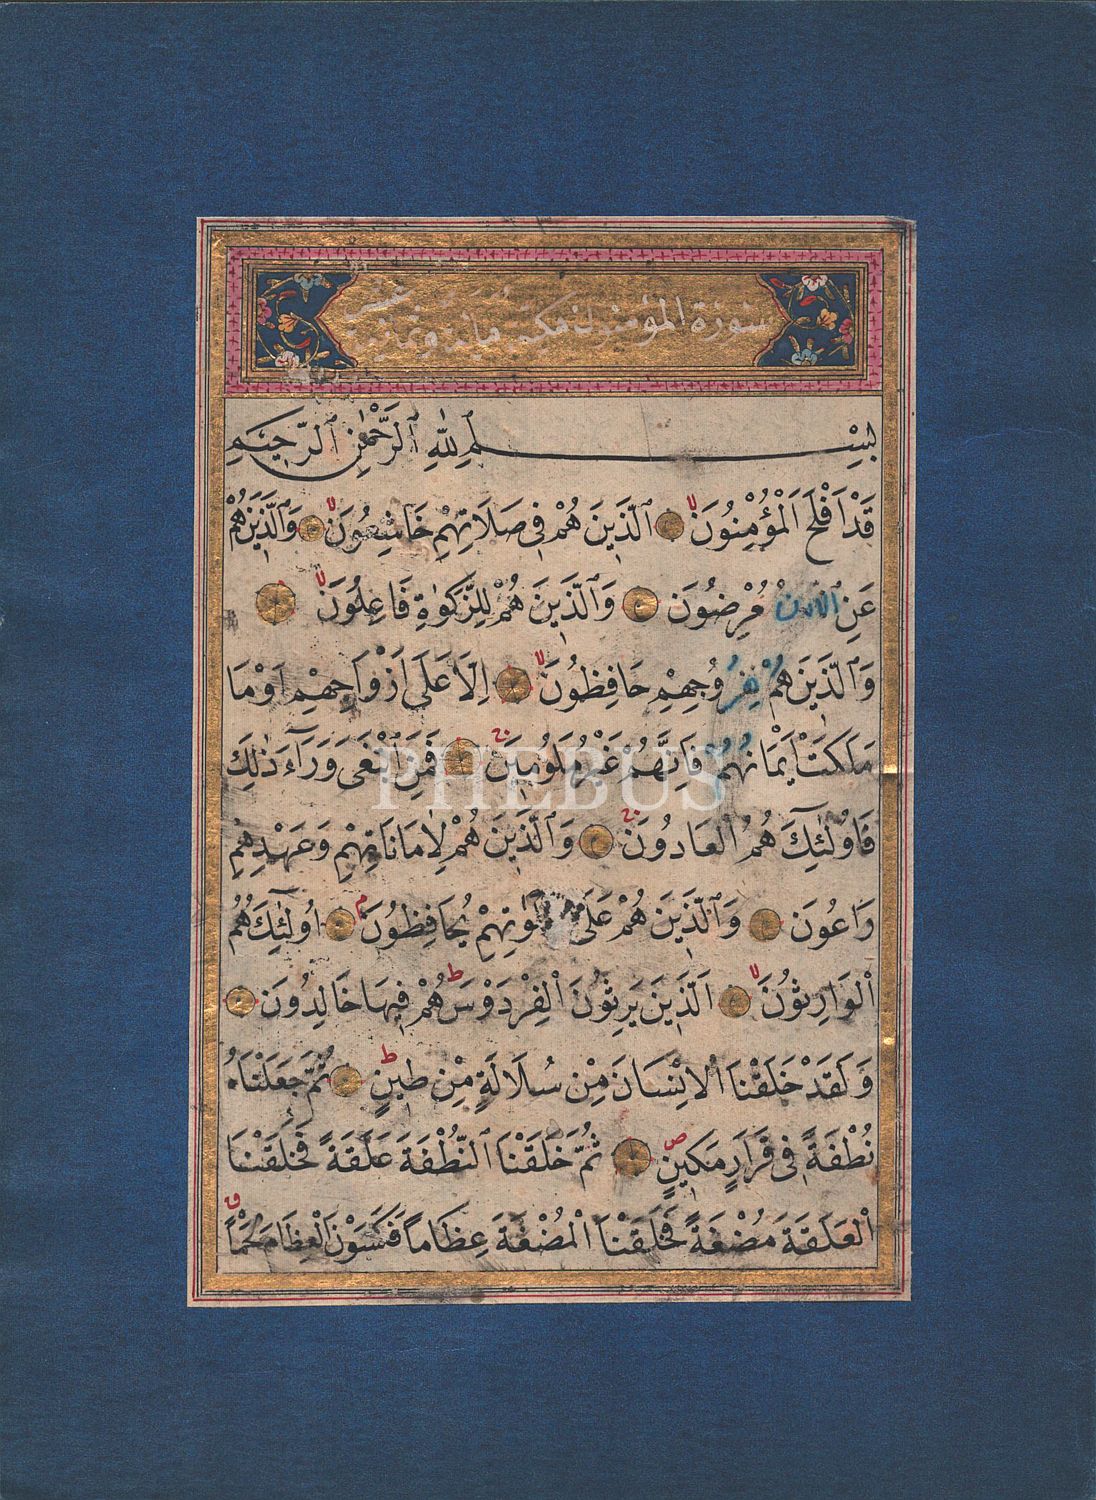 سورة المؤمنون مكية مائة وثمان
بِسْمِ ٱللّٰهِ ٱلرَّحْمٰنِ ٱلرَّحِيمِ
قَدْ اَفْلَحَ الْمُؤْمِنُونَ ۙ اَلَّذِينَ هُمْ فِى صَلَاتِهِمْ خَاشِعُونَ ۙ وَٱلَّذِينَ هُمْ
عَنِ مُعْرِضُونَ وَٱلَّذِينَ هُمْ لِلزَّكٰوةِ فَاعِلُونَ ۙ
وَٱلَّذِينَ هُمْ لِفُرُوجِهِمْ حَافِظُونَ ۙ اِلَّا عَلَى اَزْوَاجِهِمْ اَوْ مَا
مَلَكَتْ اَيْمَانُهُمْ فَاِنَّهُمْ غَيْرُ مَلُومِينَ ۚ فَمَنِ ابْتَغَى وَرَآءَ ذٰلِكَ
فَاُولٰئِكَ هُمُ الْعَادُونَ ۚ وَٱلَّذِينَ هُمْ لِاَمَانَاتِهِمْ وَعَهْدِهِمْ
رَاعُونَ وَٱلَّذِينَ هُمْ عَلَى يُحَافِظُونَ ۘ اُولٰئِكَ هُمُ
الْوَارِثُونَ ۙ اَلَّذِينَ يَرِثُونَ الْفِرْدَوْسَ ط هُمْ فِيهَا خَالِدُونَ
وَلَقَدْ خَلَقْنَا الْاِنْسَانَ مِنْ سُلَالَةٍ مِنْ طِينٍ ط ثُمَّ جَعَلْنَاهُ
نُطْفَةً فِى قَرَارٍ مَكِينٍ ص ثُمَّ خَلَقْنَا النُّطْفَةَ عَلَقَةً فَخَلَقْنَا
الْعَلَقَةَ مُضْغَةً فَخَلَقْنَا الْمُضْغَةَ عِظَامًا فَكَسَوْنَا الْعِظَامَ لَحْمًا ق
PHEBUS